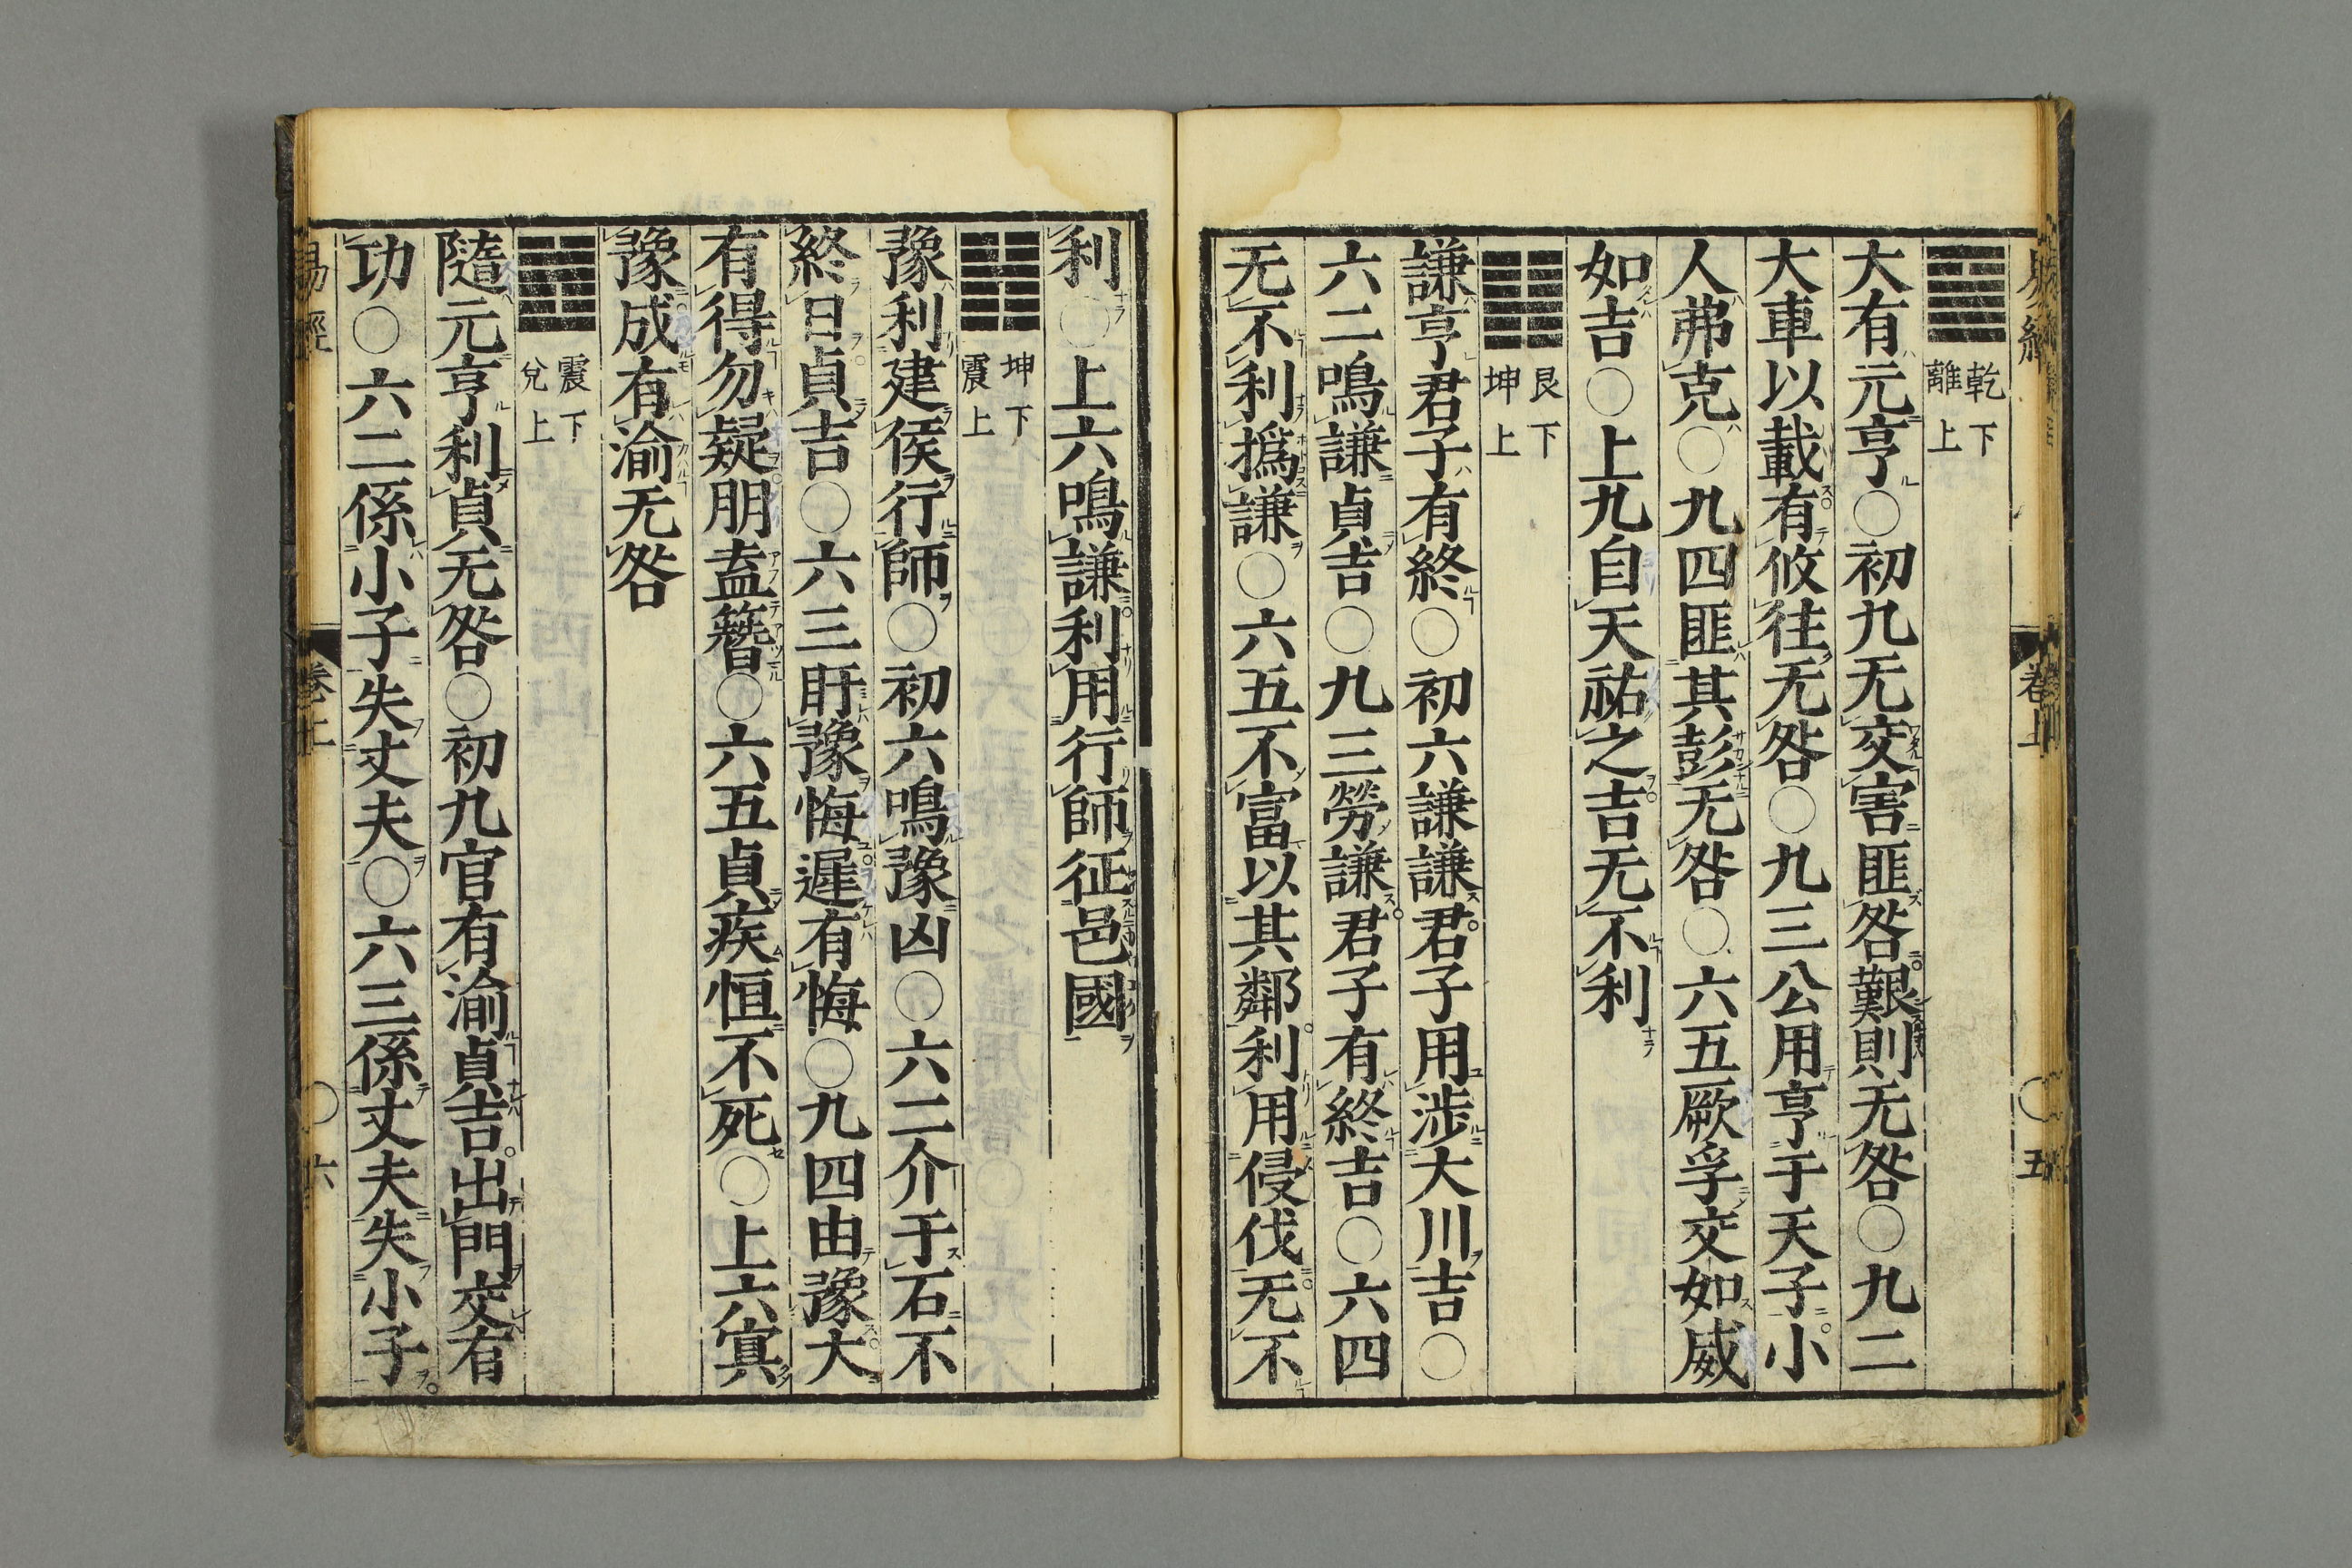 易經 卷上 〇五
乾下
離上
大有元亨〇初九无交害匪咎艱則无咎〇九二
大車以載有攸往无咎〇九三公用亨于天子小
人弗克〇九四匪其彭无咎〇六五厥孚交如威
如吉〇上九自天祐之吉无不利
艮下
坤上
謙亨君子有終〇初六謙謙君子用涉大川吉〇
六二鳴謙貞吉〇九三勞謙君子有終吉〇六四
无不利撝謙〇六五不富以其鄰利用侵伐无不
利〇上六鳴謙利用行師征邑國
坤下
震上
豫利建侯行師〇初六鳴豫凶〇六二介于石不
終日貞吉〇六三盱豫悔遲有悔〇九四由豫大
有得勿疑朋盍簪〇六五貞疾恒不死〇上六冥
豫成有渝无咎
震下
兌上
隨元亨利貞无咎〇初九官有渝貞吉出門交有
功〇六二係小子失丈夫〇六三係丈夫失小子
易經 卷上 〇六